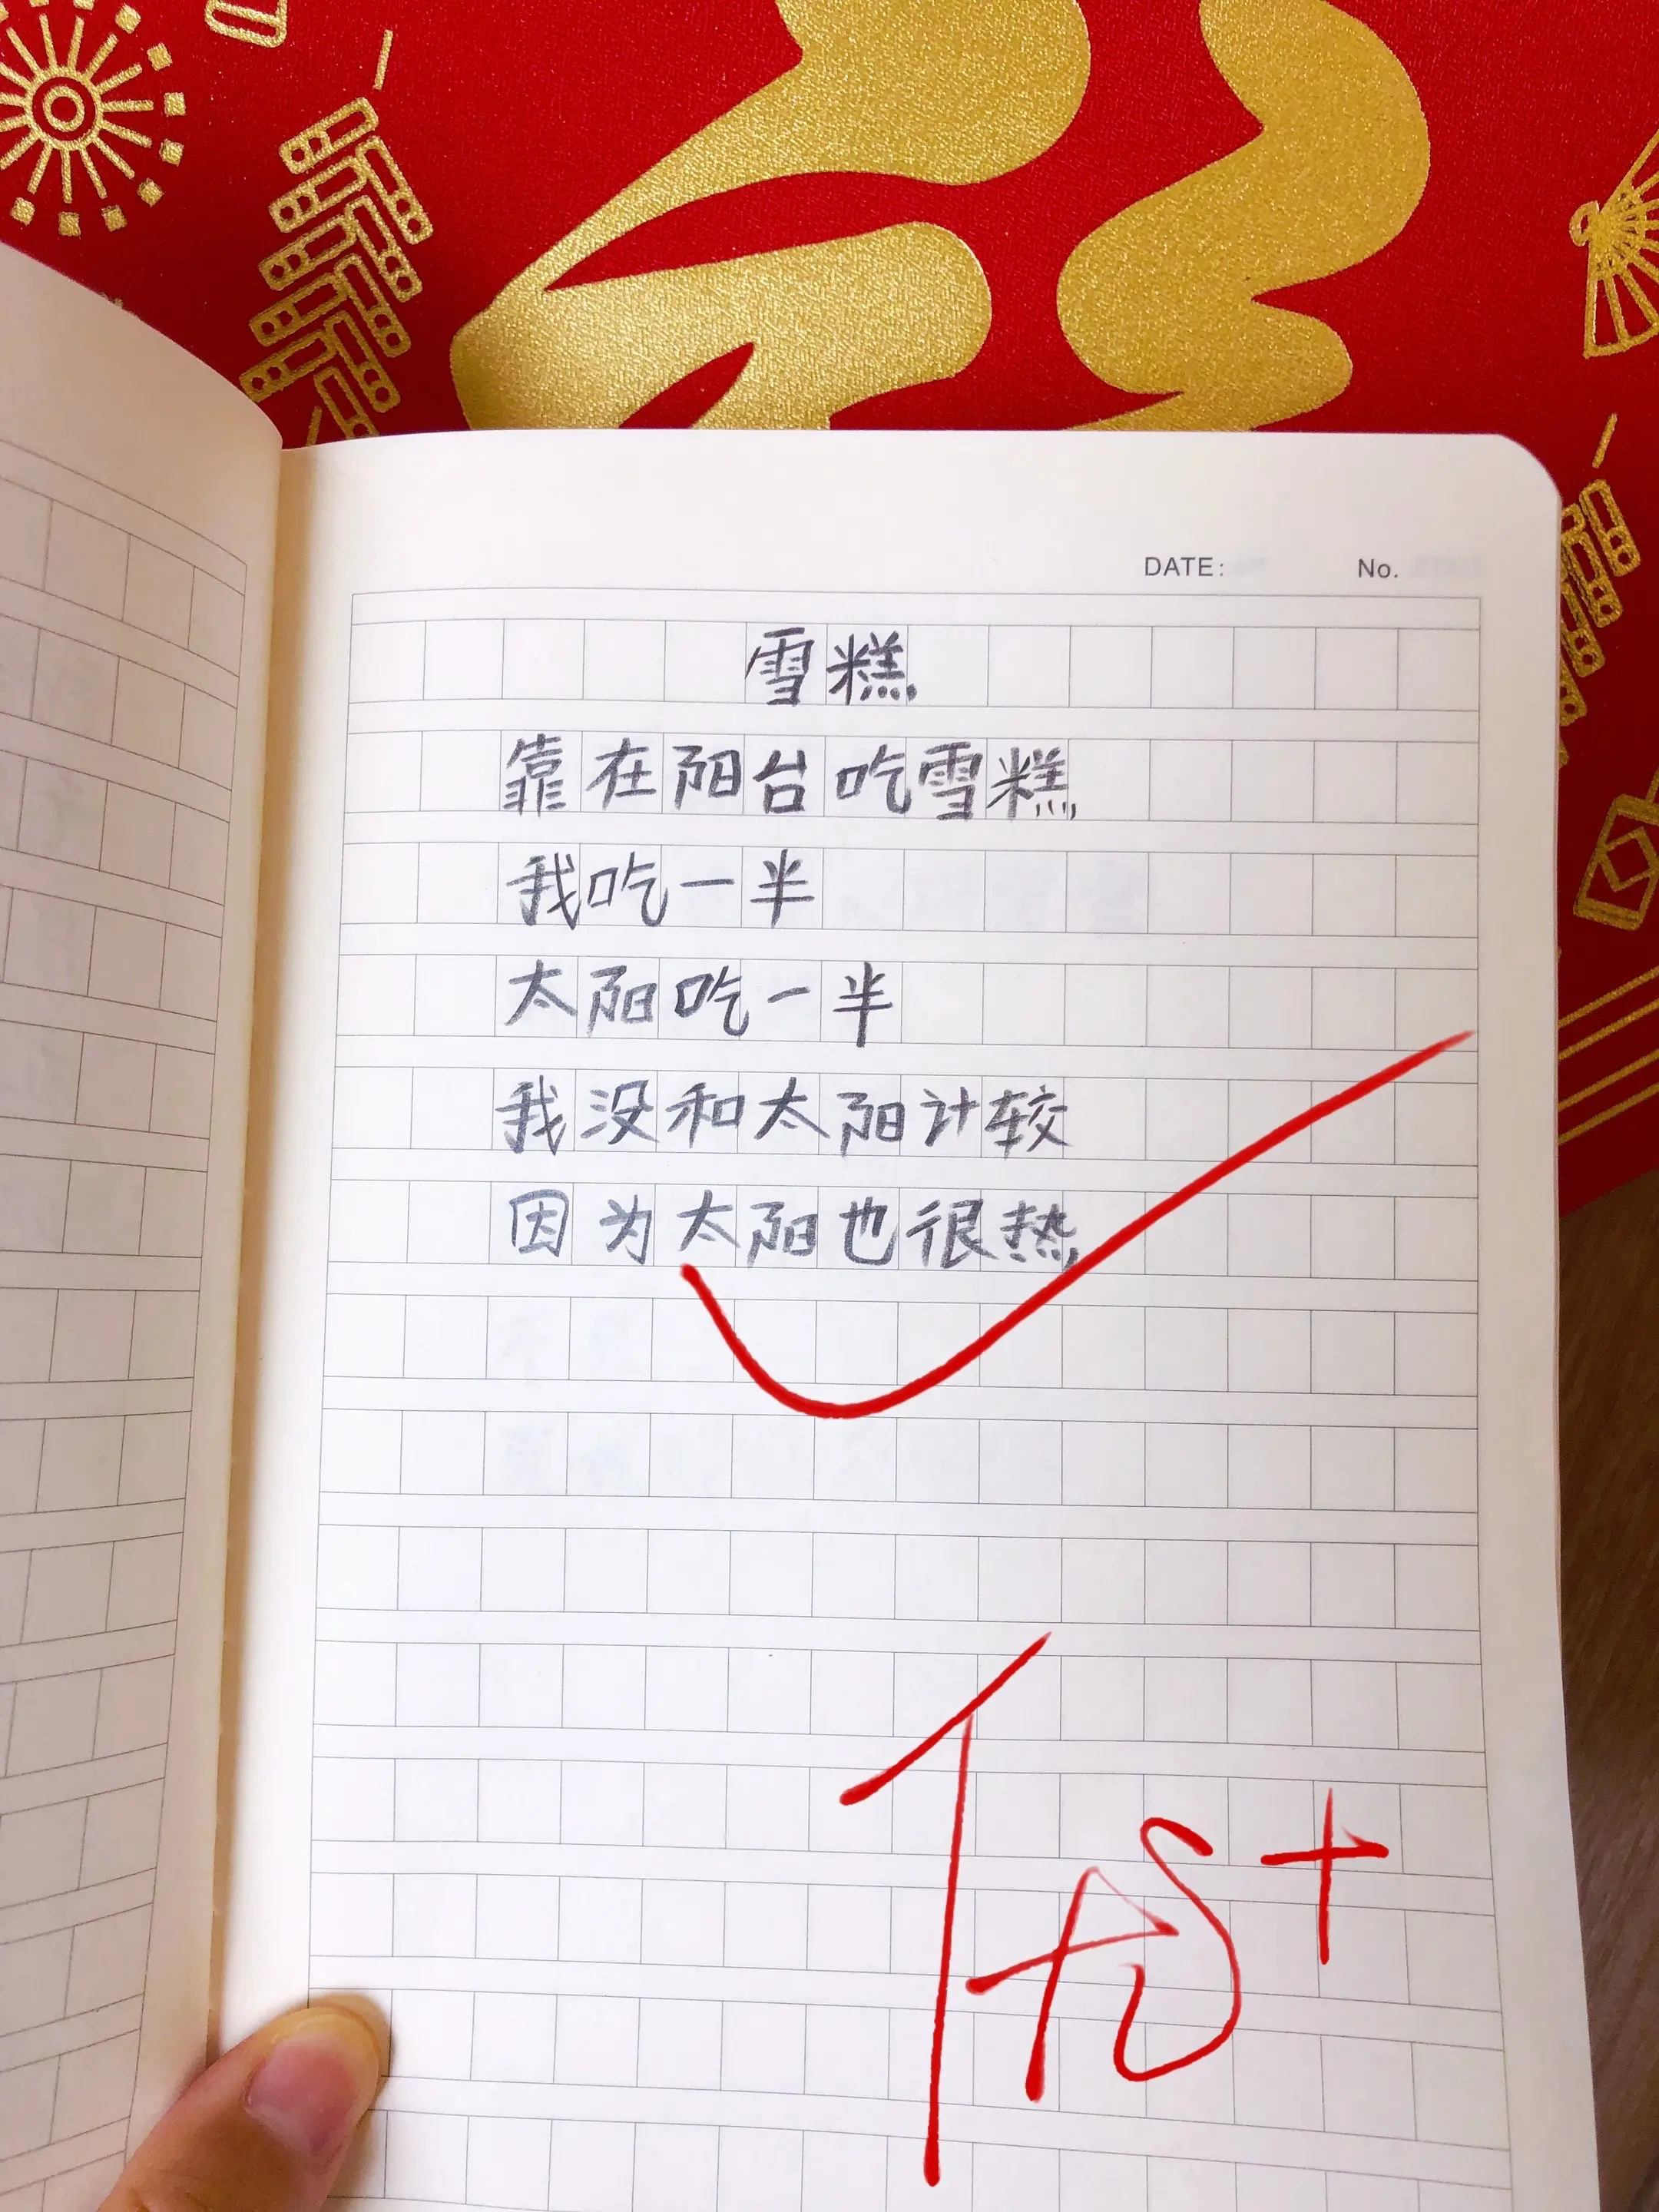 DATE: No.
雪糕
靠在阳台吃雪糕
我吃一半
太阳吃一半
我没和太阳计较
因为太阳也很热